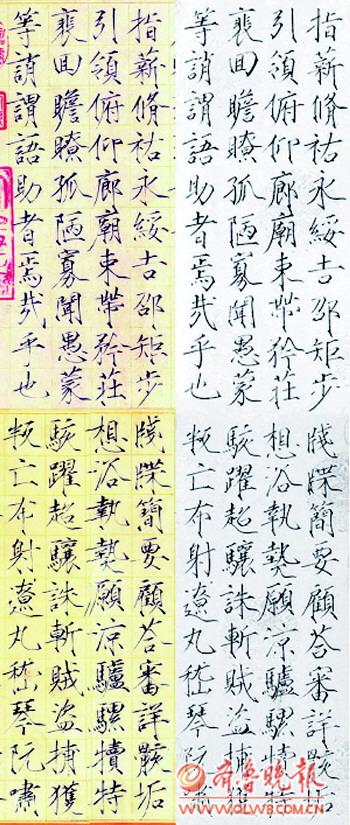 指薪脩祐永綏吉邵矩步
引領俯仰廊廟束帶矜莊
裵回瞻瞭孤陋寡聞愚蒙
等誚謂語助者焉哉乎也
指薪脩祐永綏吉邵矩步
引領俯仰廊廟束帶矜莊
裵回瞻瞭孤陋寡聞愚蒙
等誚謂語助者焉哉乎也
牋牒簡要顧答審詳骸垢
想浴執熱願涼驢騾犢特
駭躍超驤誅斬賊盜捕獲
叛亡布射遼丸嵇琴阮嘯
牋牒簡要顧答審詳骸垢
想浴執熱願涼驢騾犢特
駭躍超驤誅斬賊盜捕獲
叛亡布射遼丸嵇琴阮
齊魯晚報
WWW.QLWB.COM.CN